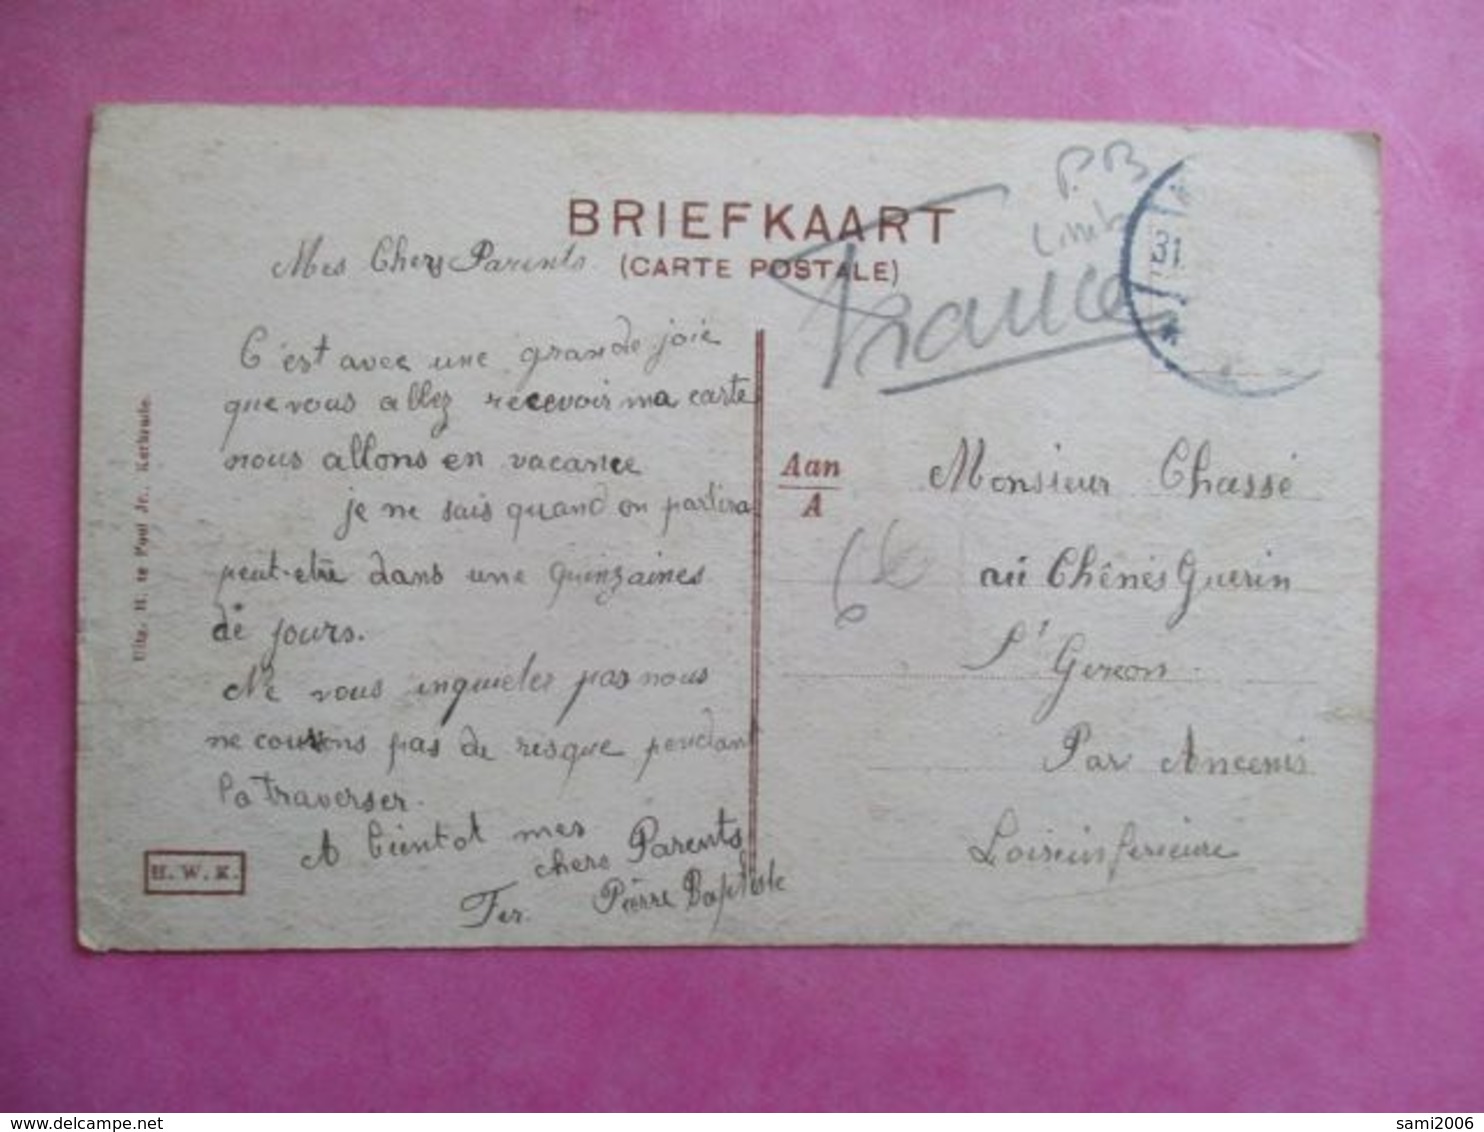 BRIEFKAART
(CARTE POSTALE)
P.B
Limb
France
31
Mes Chers Parents
C'est avec une grande joie
que vous allez recevoir ma carte
nous allons en vacance
je ne sais quand on partira
peut-etre dans une quinzaines
de jours.
Ne vous inquieter pas nous
ne courons pas de risque pendant
la traverser.
A bientot mes
chers Parents
Fer. Pierre Baptiste
Aan
A
Monsieur Chassé
au Chênes Guerin
St Gereon
Par Ancenis
Loire inferieure
Uitg. H. te Poel Jr., Kerkrade.
H. W. K.
sami2006
delcampe.net